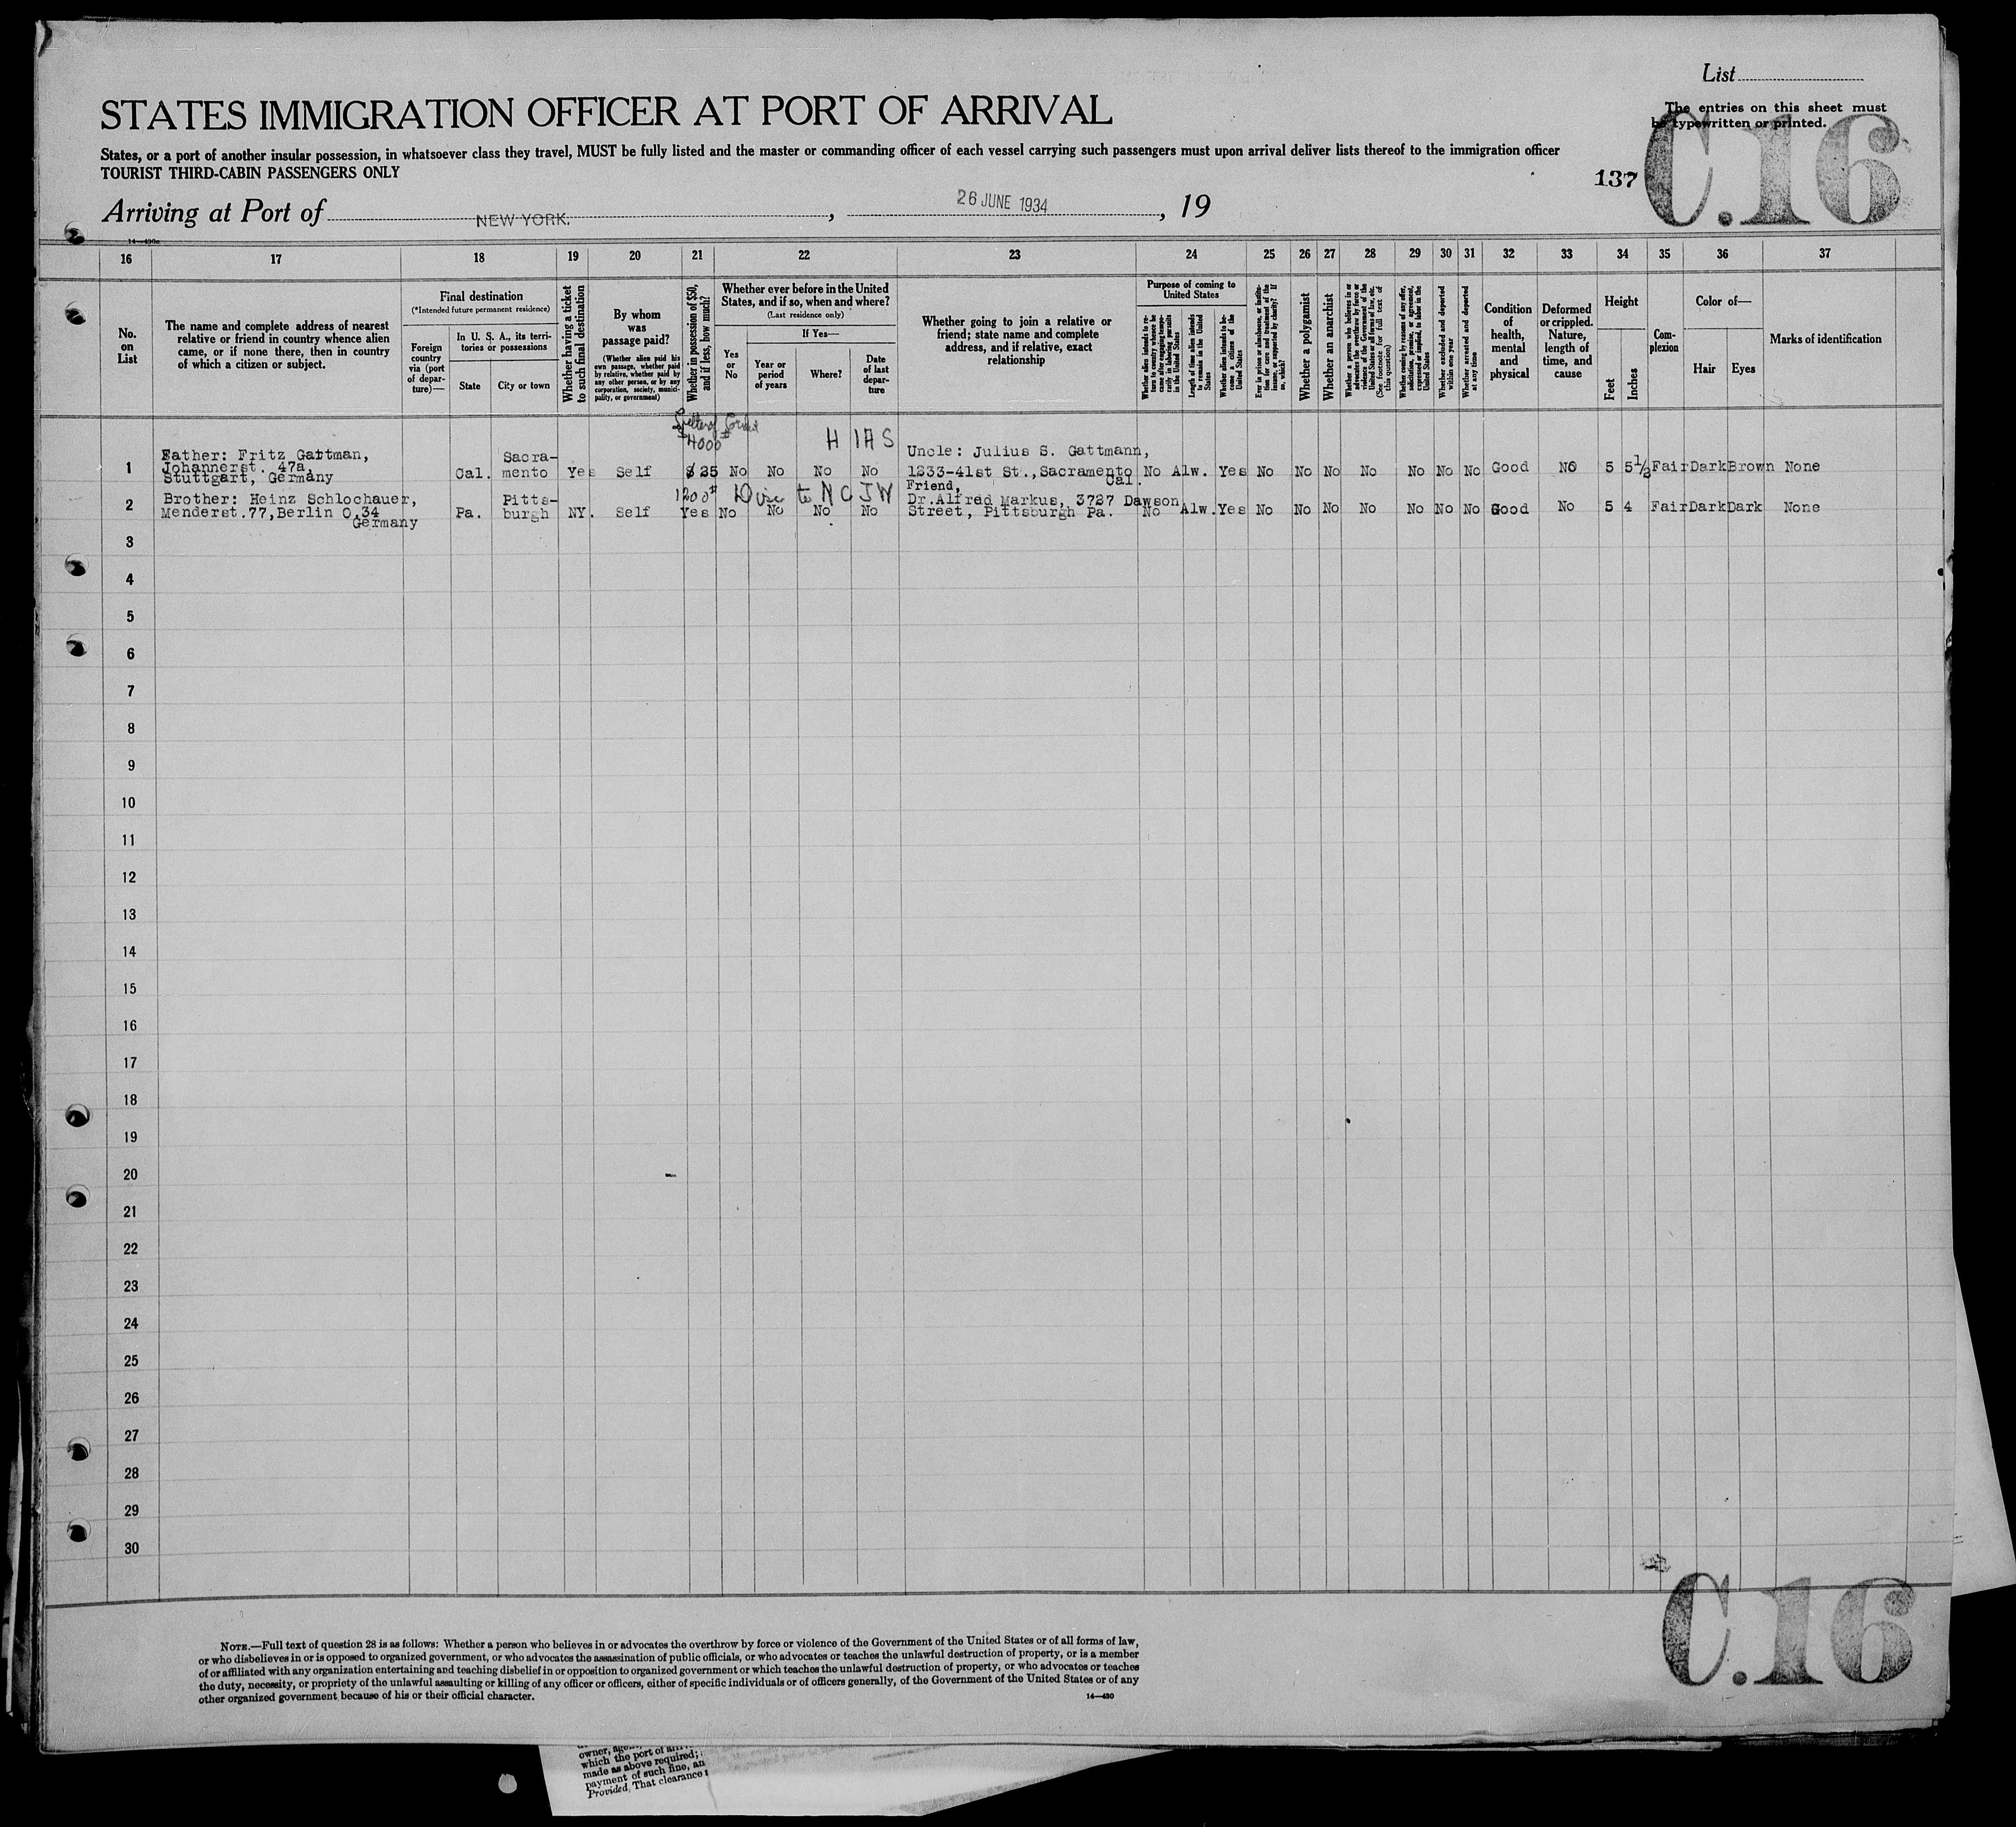 List
STATES IMMIGRATION OFFICER AT PORT OF ARRIVAL
The entries on this sheet must
be typewritten or printed.
C.16
States, or a port of another insular possession, in whatsoever class they travel, MUST be fully listed and the master or commanding officer of each vessel carrying such passengers must upon arrival deliver lists thereof to the immigration officer
TOURIST THIRD-CABIN PASSENGERS ONLY
137
Arriving at Port of NEW YORK. , 26 JUNE 1934 , 19
14—430a
16 17 18 19 20 21 22 23 24 25 26 27 28 29 30 31 32 33 34 35 36 37
No. on List
The name and complete address of nearest relative or friend in country whence alien came, or if none there, then in country of which a citizen or subject.
Final destination
(*Intended future permanent residence)
Foreign country via (port of departure)—
In U. S. A., its territories or possessions
State
City or town
Whether having a ticket to such final destination
By whom was passage paid?
(Whether alien paid his own passage, whether paid by relative, whether paid by any other person, or by any corporation, society, municipality, or government)
Whether in possession of $50, and if less, how much?
Whether ever before in the United States, and if so, when and where?
(Last residence only)
Yes or No
If Yes—
Year or period of years
Where?
Date of last departure
Whether going to join a relative or friend; state name and complete address, and if relative, exact relationship
Purpose of coming to United States
Whether alien intends to return to country whence he came after engaging temporarily in laboring pursuits in the United States
Length of time alien intends to remain in the United States
Whether alien intends to become a citizen of the United States
Ever in prison or almshouse, or institution for care and treatment of the insane, or supported by charity? If so, which?
Whether a polygamist
Whether an anarchist
Whether a person who believes in or advocates the overthrow by force or violence of the Government of the United States or all forms of law, etc. (See footnote for full text of this question)
Whether coming by reasons of any offer, solicitation, promise, or agreement, expressed or implied, to labor in the United States
Whether excluded and deported within one year
Whether arrested and deported at any time
Condition of health, mental and physical
Deformed or crippled. Nature, length of time, and cause
Height
Feet
Inches
Complexion
Color of—
Hair
Eyes
Marks of identification
$4000
H I A S
1 Father: Fritz Gattman, Johannerst. 47a, Stuttgart, Germany Cal. Sacramento Yes Self $25 No No No No Uncle: Julius S. Gattmann, 1233-41st St.,Sacramento Cal. No Alw. Yes No No No No No No No Good No 5 5½ Fair Dark Brown None
1200 Disc to N C J W
2 Brother: Heinz Schlochauer, Menderst.77,Berlin O.34 Germany Pa. Pittsburgh NY. Self Yes No No No No Friend, Dr.Alfred Markus, 3727 Dawson Street, Pittsburgh Pa. No Alw. Yes No No No No No No No Good No 5 4 Fair Dark Dark None
3
4
5
6
7
8
9
10
11
12
13
14
15
16
17
18
19
20
21
22
23
24
25
26
27
28
29
30
C.16
NOTE.—Full text of question 28 is as follows: Whether a person who believes in or advocates the overthrow by force or violence of the Government of the United States or of all forms of law,
or who disbelieves in or is opposed to organized government, or who advocates the assassination of public officials, or who advocates or teaches the unlawful destruction of property, or is a member
of or affiliated with any organization entertaining and teaching disbelief in or opposition to organized government or which teaches the unlawful destruction of property, or who advocates or teaches
the duty, necessity, or propriety of the unlawful assaulting or killing of any officer or officers, either of specific individuals or of officers generally, of the Government of the United States or of any
other organized government because of his or their official character.
14—430
owner,
which the port of
made as above required;
payment of such fine, an
Provided, That clearance